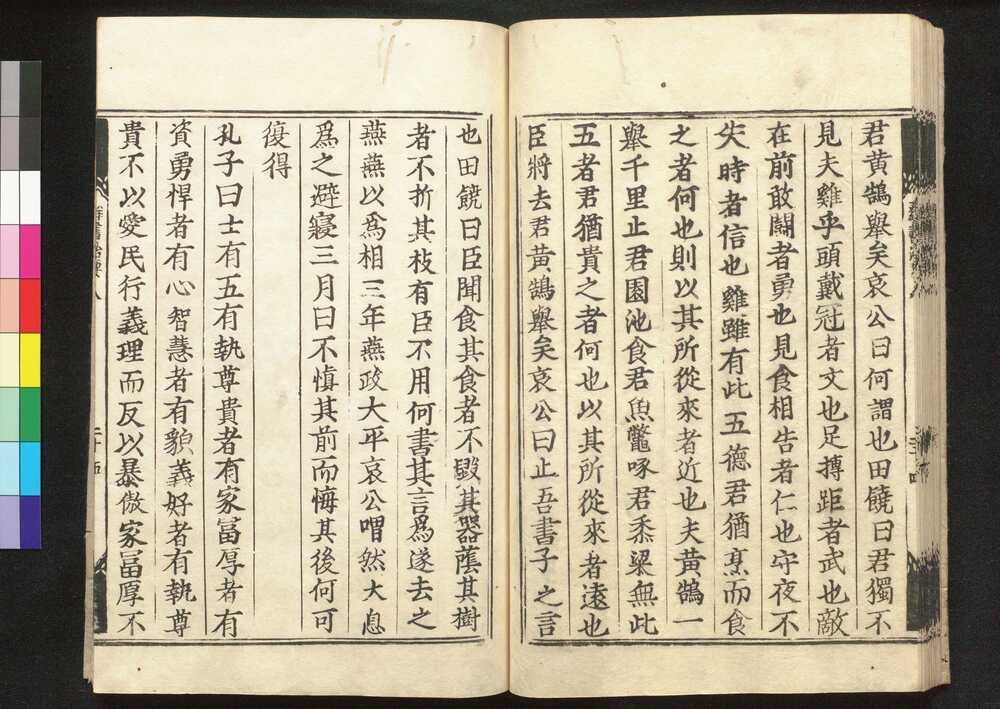 君黄鵠舉矣哀公曰何謂也田饒曰君獨不
見夫雞乎頭戴冠者文也足搏距者武也敵
在前敢鬪者勇也見食相告者仁也守夜不
失時者信也雞雖有此五德君猶烹而食
之者何也則以其所從來者近也夫黄鵠一
舉千里止君園池食君魚鼈啄君黍粱無此
五者君猶貴之者何也以其所從來者遠也
臣將去君黄鵠舉矣哀公曰止吾書子之言
也田饒曰臣聞食其食者不毀其器蔭其樹
者不折其枝有臣不用何書其言爲遂去之
燕燕以爲相三年燕政大平哀公喟然大息
爲之避寢三月曰不愼其前而悔其後何可
復得
孔子曰士有五有執尊貴者有家富厚者有
資勇悍者有心智慧者有貌義好者有執尊
貴不以愛民行義理而反以暴傲家富厚不
群書治要八
二十五